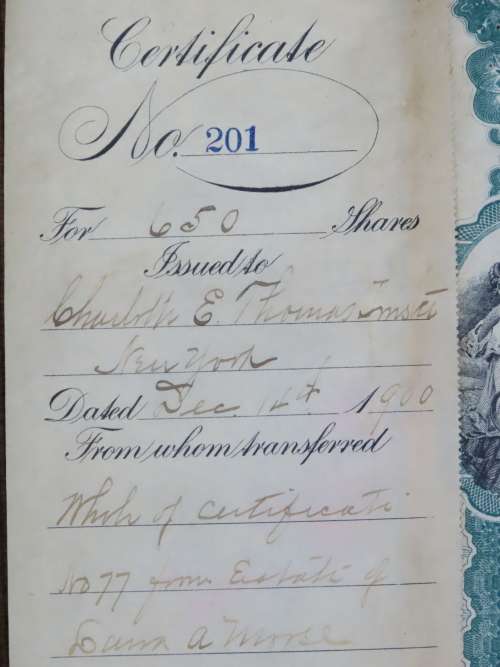 Certificate
No. 201
For 650 Shares
Issued to
Charlotte E. Thomas
New York
Dated Dec. 14th 1900
From whom transferred
Whole of certificate
No 77 from Estate of
Laura A Morse